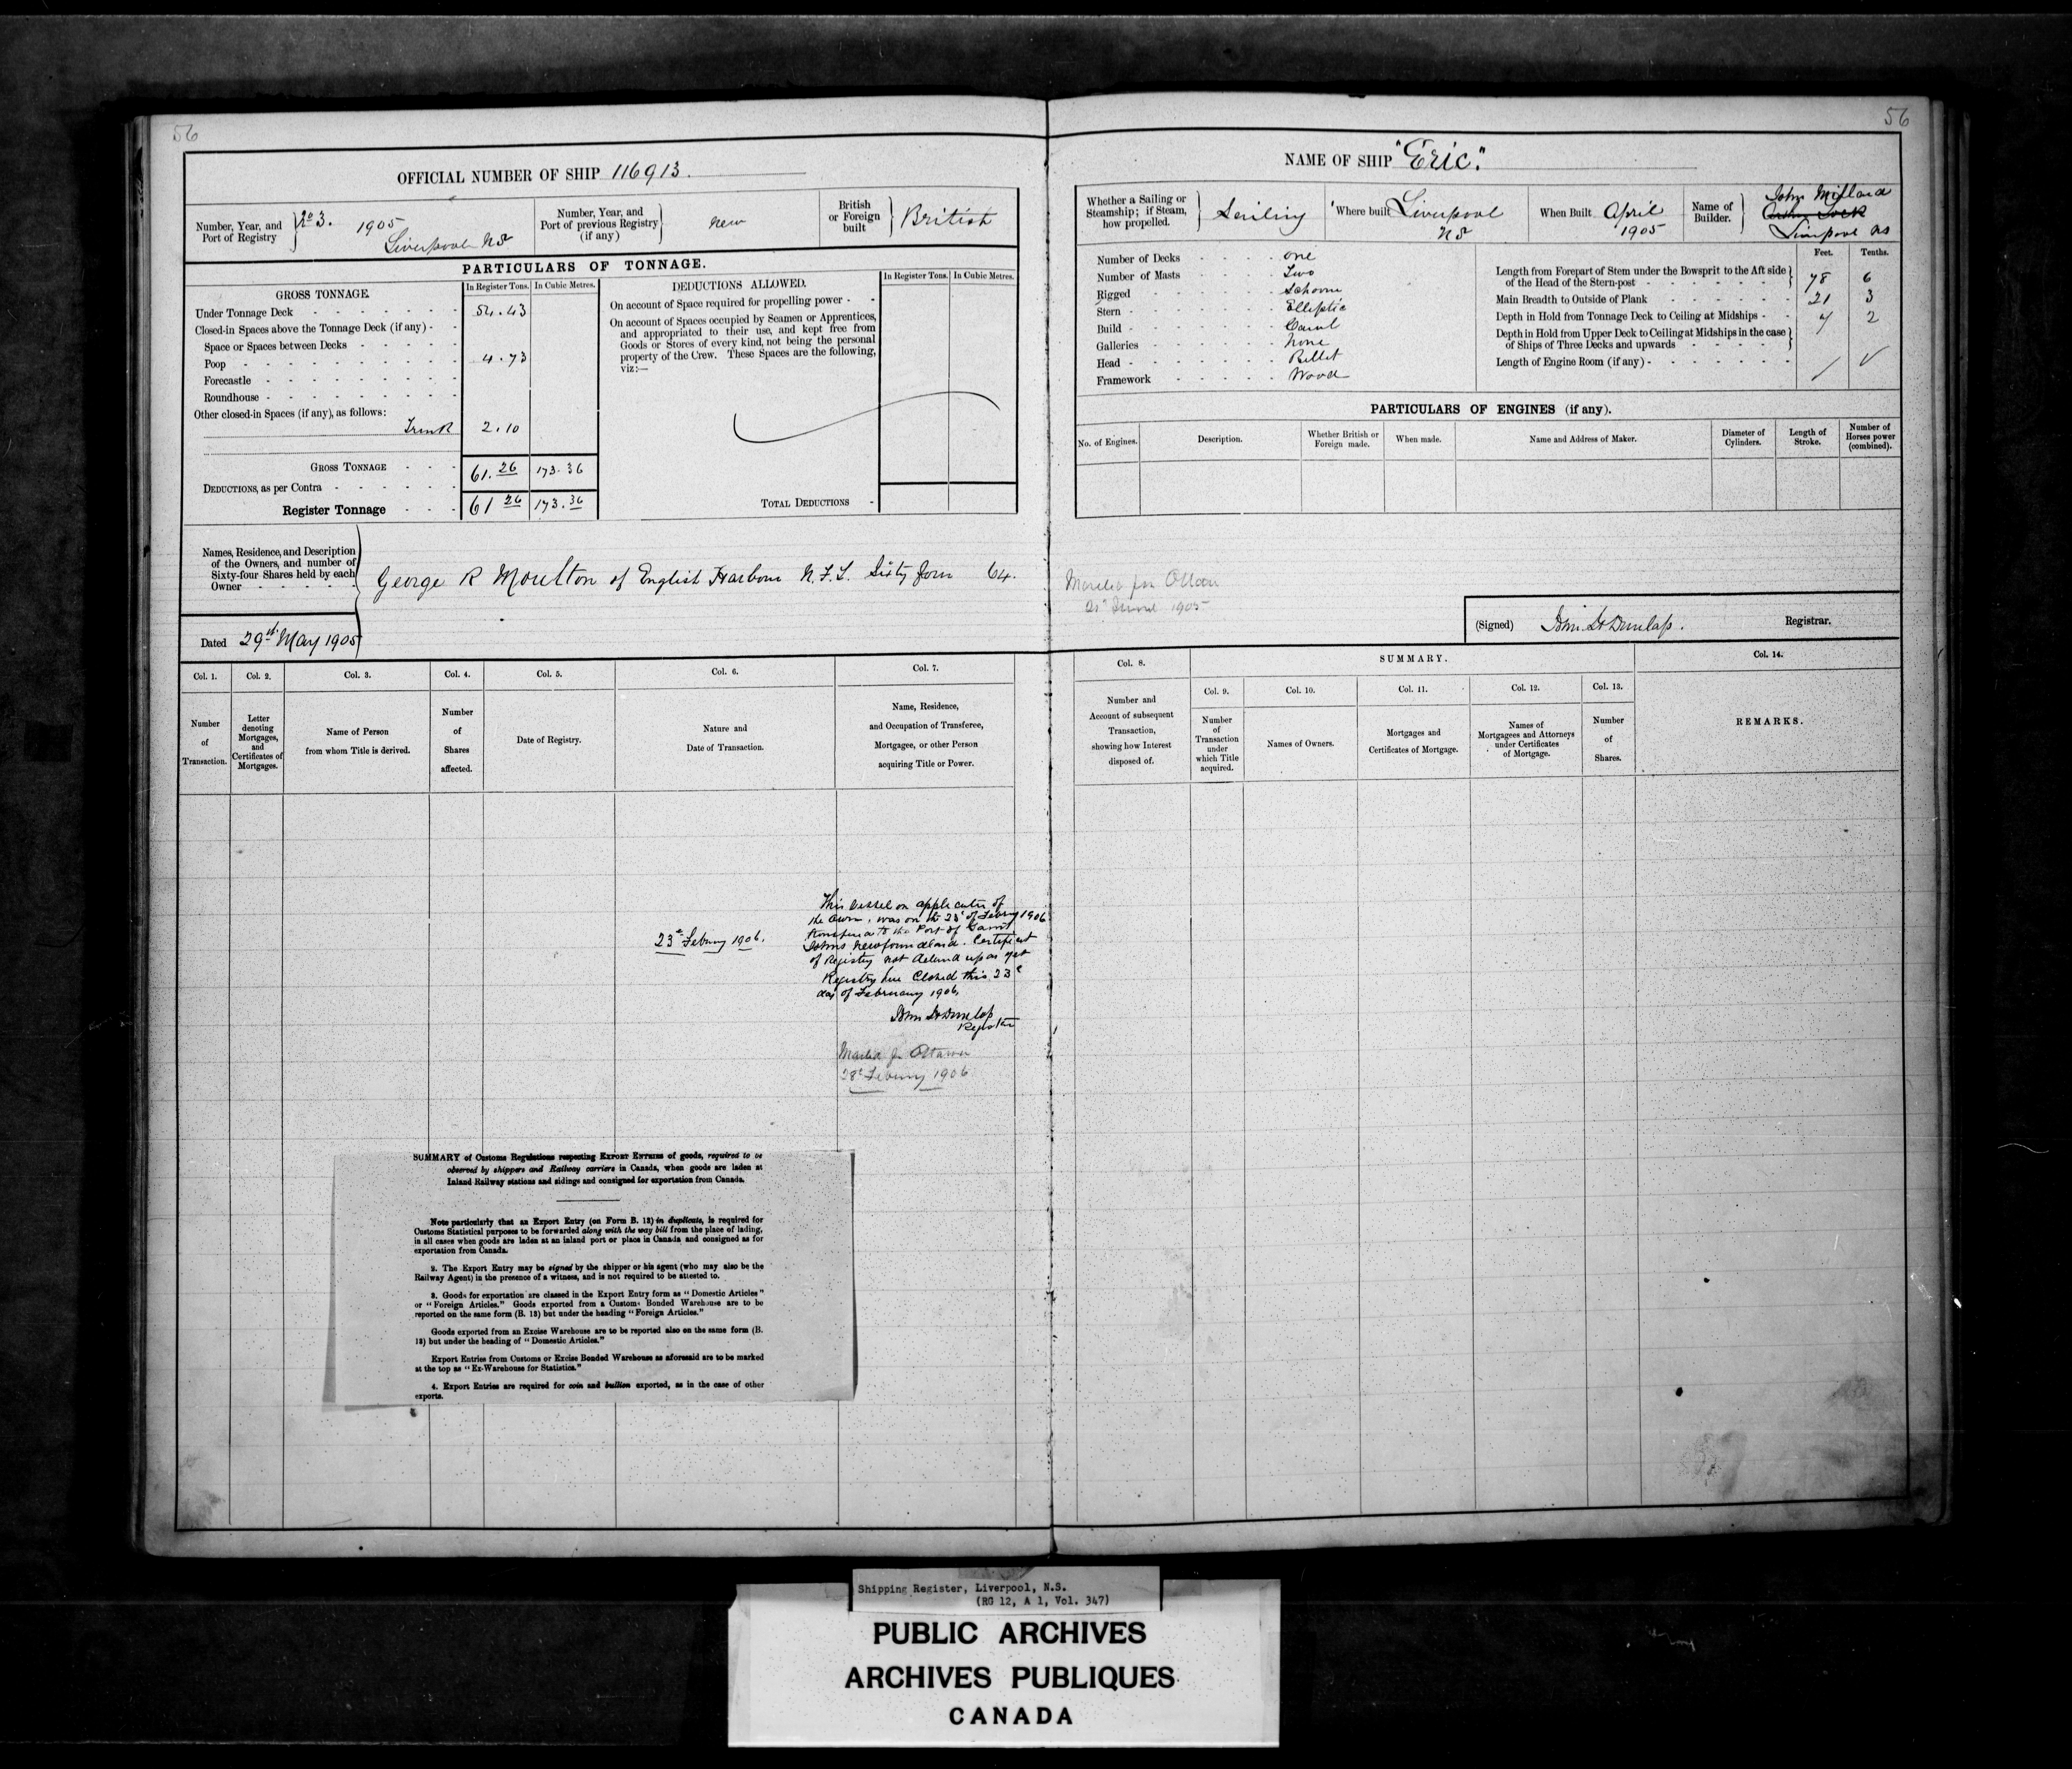 56
OFFICIAL NUMBER OF SHIP 116913.
Number, Year, and Port of Registry } No 3. 1905 Liverpool NS
Number, Year, and Port of previous Registry (if any) } new
British or Foreign built } British
PARTICULARS OF TONNAGE.
GROSS TONNAGE.
In Register Tons.
In Cubic Metres.
Under Tonnage Deck 54.43
Closed-in Spaces above the Tonnage Deck (if any)
Space or Spaces between Decks
Poop 4.73
Forecastle
Roundhouse
Other closed-in Spaces (if any), as follows:
Trunk 2.10
GROSS TONNAGE 61.26 173.36
DEDUCTIONS, as per Contra
Register Tonnage 61 26 173.36
DEDUCTIONS ALLOWED.
In Register Tons.
In Cubic Metres.
On account of Space required for propelling power
On account of Spaces occupied by Seamen or Apprentices,
and appropriated to their use, and kept free from
Goods or Stores of every kind, not being the personal
property of the Crew. These Spaces are the following,
viz:—
TOTAL DEDUCTIONS
Names, Residence, and Description
of the Owners, and number of
Sixty-four Shares held by each
Owner
George R Moulton of English Harbour N.F.L. Sixty four 64.
Dated 29th May 1905
Col. 1. Number of Transaction.
Col. 2. Letter denoting Mortgages, and Certificates of Mortgages.
Col. 3. Name of Person from whom Title is derived.
Col. 4. Number of Shares affected.
Col. 5. Date of Registry.
Col. 6. Nature and Date of Transaction.
Col. 7. Name, Residence, and Occupation of Transferee, Mortgagee, or other Person acquiring Title or Power.
23d Febuary 1906.
This Vessel on application of
the Owner, was on the 23d of Febuary 1906
transfered to the Port of Saint
Johns Newfoundland. Certificat
of Registry not delivered up as yet
Registry here Closed this 23d
day of February 1906.
John H Dunlap
Registrar
Mailed for Ottawa
28th Febuary 1906
SUMMARY of Customs Regulations respecting EXPORT ENTRIES of goods, required to be
observed by shippers and Railway carriers in Canada, when goods are laden at
Inland Railway stations and sidings and consigned for exportation from Canada.
Note particularly that an Export Entry (on Form B. 13) in duplicate, is required for
Customs Statistical purposes to be forwarded along with the way bill from the place of lading,
in all cases when goods are laden at an inland port or place in Canada and consigned as for
exportation from Canada.
2. The Export Entry may be signed by the shipper or his agent (who may also be the
Railway Agent) in the presence of a witness, and is not required to be attested to.
3. Goods for exportation are classed in the Export Entry form as "Domestic Articles"
or "Foreign Articles." Goods exported from a Customs Bonded Warehouse are to be
reported on the same form (B. 13) but under the heading "Foreign Articles."
Goods exported from an Excise Warehouse are to be reported also on the same form (B.
13) but under the heading of "Domestic Articles."
Export Entries from Customs or Excise Bonded Warehouse as aforesaid are to be marked
at the top as "Ex-Warehouse for Statistics."
4. Export Entries are required for coin and bullion exported, as in the case of other
exports.
56
NAME OF SHIP "Eric".
Whether a Sailing or Steamship; if Steam, how propelled. } Sailing
Where built Liverpool NS
When Built April 1905
Name of Builder. } John Millard
Liverpool NS
Number of Decks one
Number of Masts Two
Rigged Schooner
Stern Elliptic
Build Carvel
Galleries none
Head Billet
Framework Wood
Feet. Tenths.
Length from Forepart of Stem under the Bowsprit to the Aft side
of the Head of the Stern-post 78 6
Main Breadth to Outside of Plank 21 3
Depth in Hold from Tonnage Deck to Ceiling at Midships 7 2
Depth in Hold from Upper Deck to Ceiling at Midships in the case
of Ships of Three Decks and upwards
Length of Engine Room (if any)
PARTICULARS OF ENGINES (if any).
No. of Engines.
Description.
Whether British or Foreign made.
When made.
Name and Address of Maker.
Diameter of Cylinders.
Length of Stroke.
Number of Horses power (combined).
Mailed for Ottawa
1905
(Signed) John H Dunlap. Registrar.
Col. 8. Number and Account of subsequent Transaction, showing how Interest disposed of.
SUMMARY.
Col. 9. Number of Transaction under which Title acquired.
Col. 10. Names of Owners.
Col. 11. Mortgages and Certificates of Mortgage.
Col. 12. Names of Mortgagees and Attorneys under Certificates of Mortgage.
Col. 13. Number of Shares.
Col. 14. REMARKS.
Shipping Register, Liverpool, N.S.
(RG 12, A 1, Vol. 347)
PUBLIC ARCHIVES
ARCHIVES PUBLIQUES
CANADA